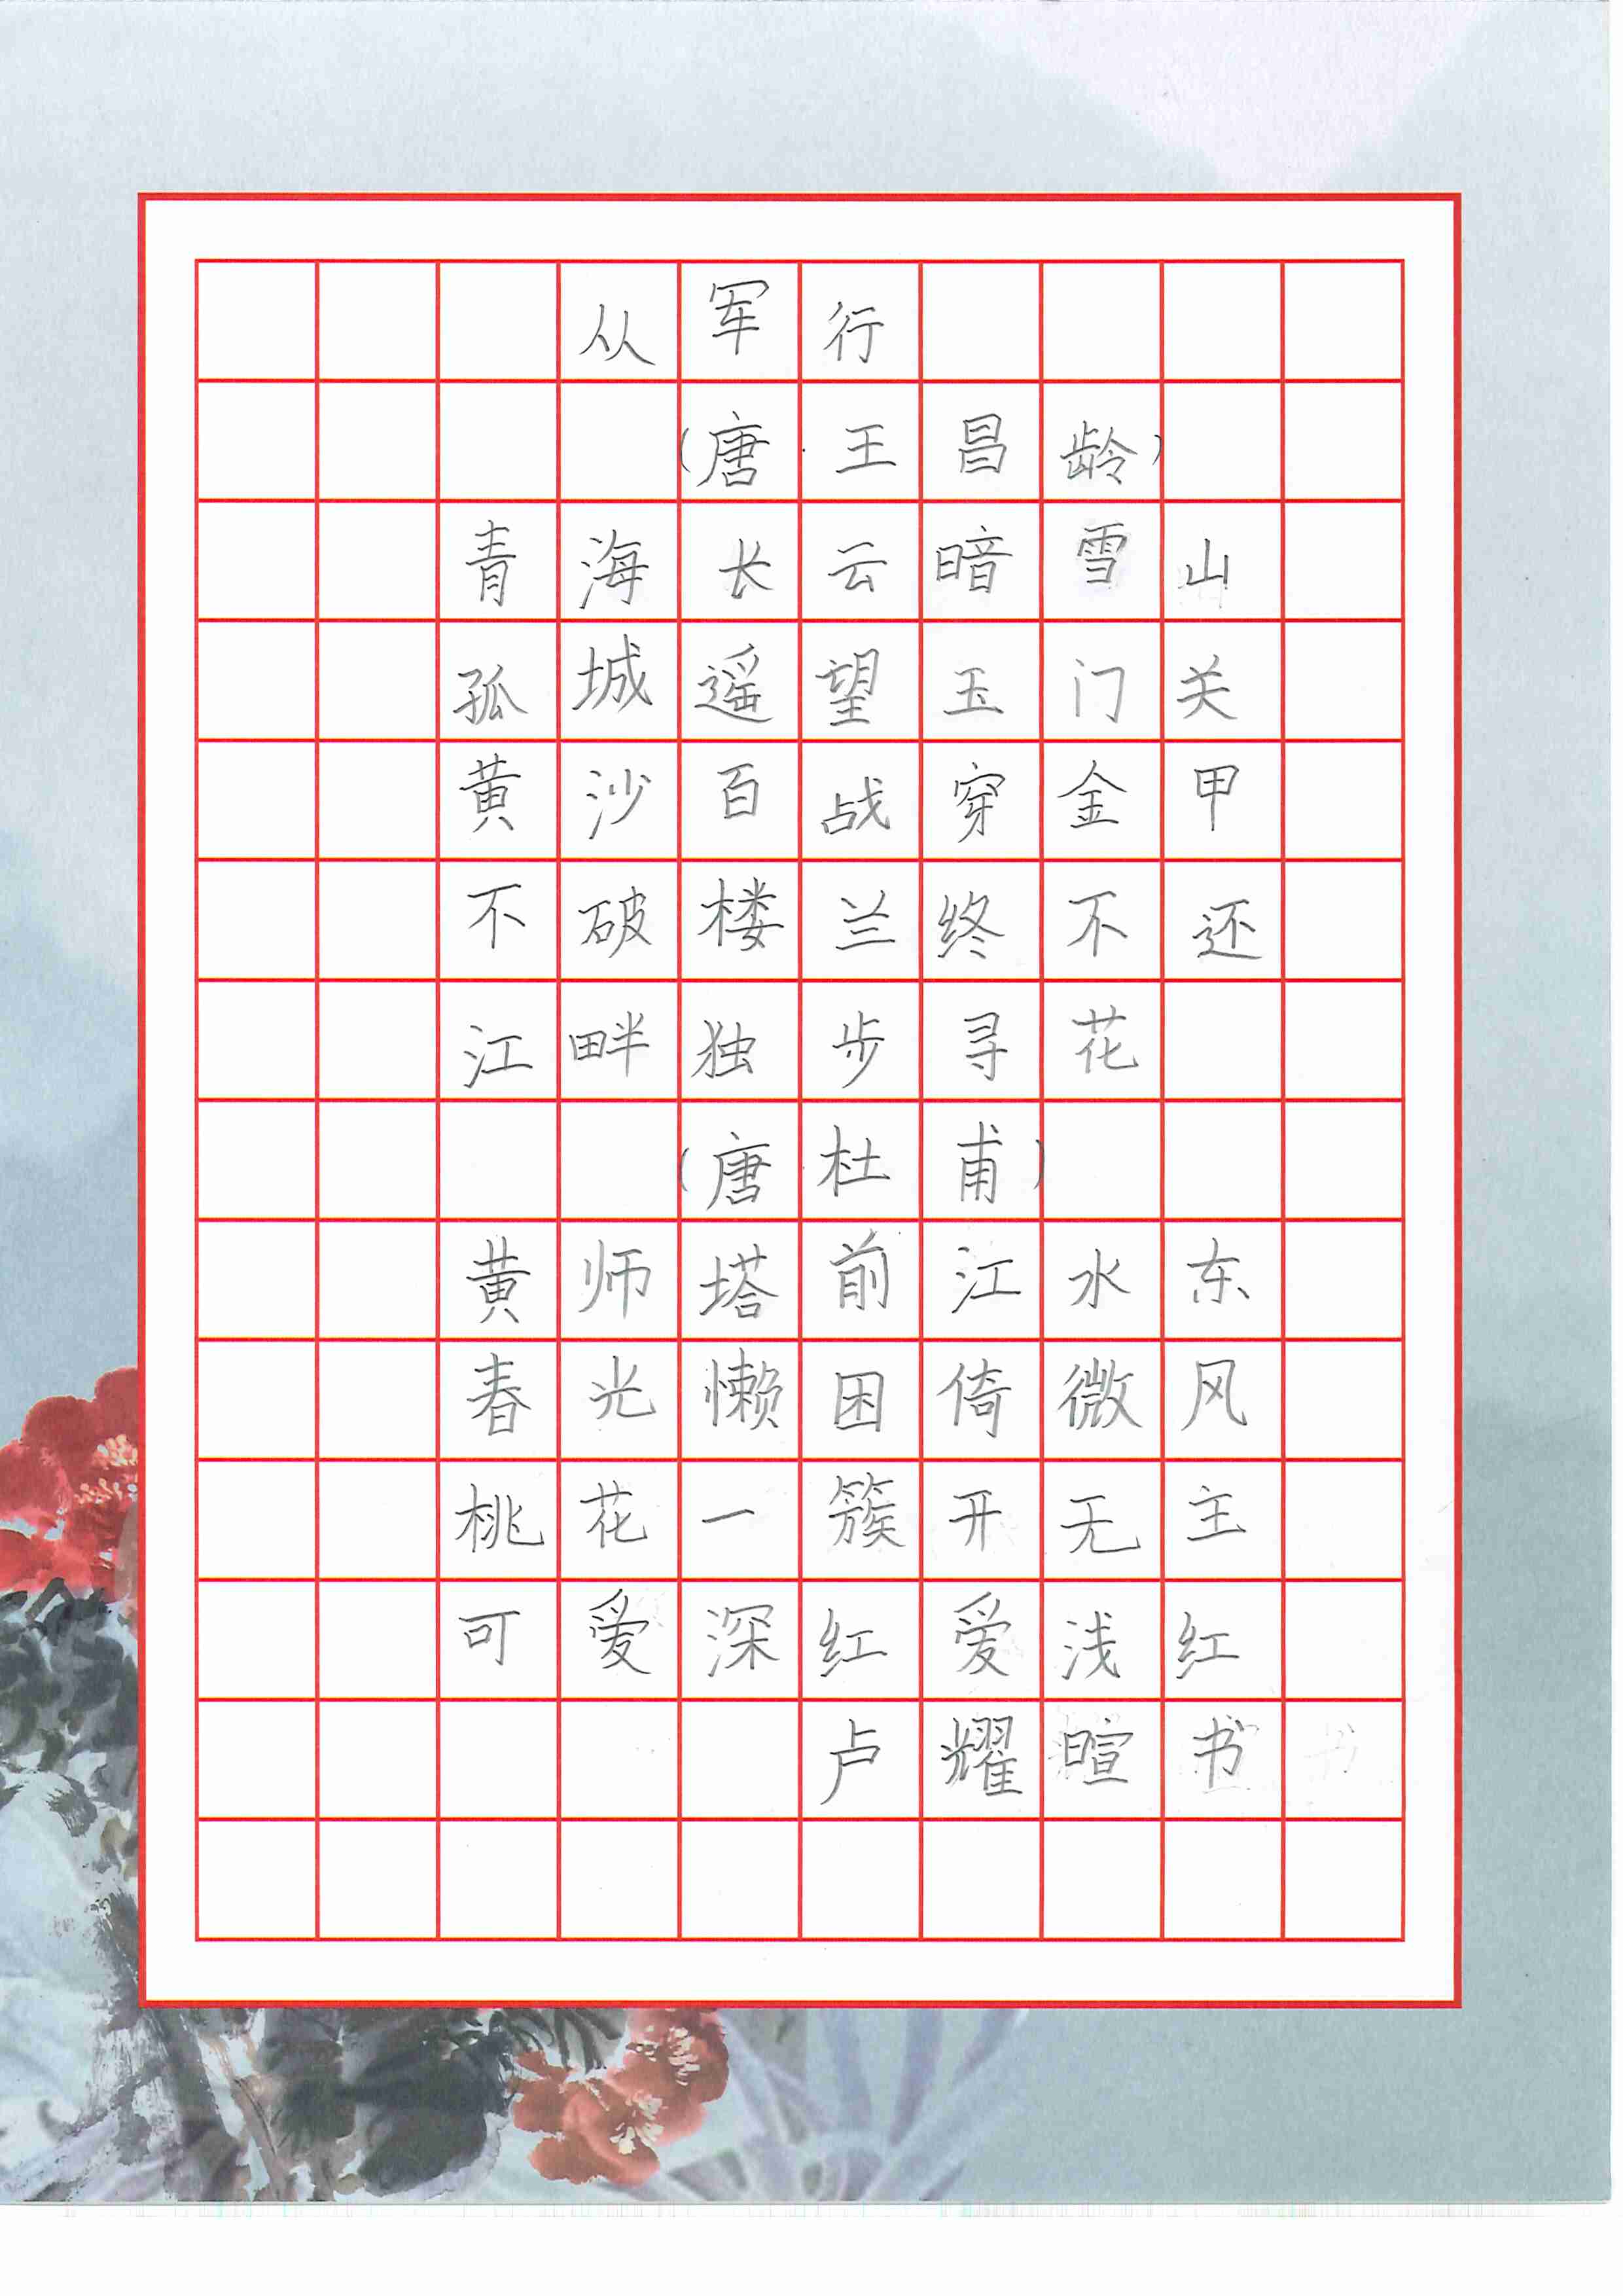 从军行
(唐·王昌龄)
青海长云暗雪山
孤城遥望玉门关
黄沙百战穿金甲
不破楼兰终不还
江畔独步寻花
(唐·杜甫)
黄师塔前江水东
春光懒困倚微风
桃花一簇开无主
可爱深红爱浅红
卢耀暄书